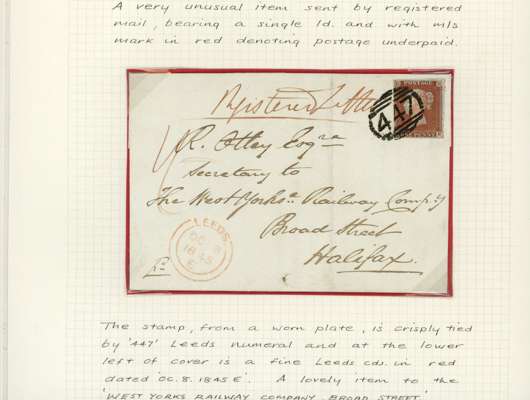 A very unusual item sent by registered
mail, bearing a single 1d. and with m/s
mark in red denoting postage underpaid.
Registered Letter
POSTAGE
447
PENNY
R. Ottey Esqre
Secretary to
The West Yorks. Railway Compy
Broad Street
Halifax.
LEEDS
OC 8
1845
E
The stamp, from a worn plate, is crisply tied
by '447' Leeds Numeral and at the lower
left of cover is a fine Leeds cds. in red
dated 'OC. 8. 1845 E'. A lovely item to the
'WEST YORKS RAILWAY COMPANY, BROAD STREET,